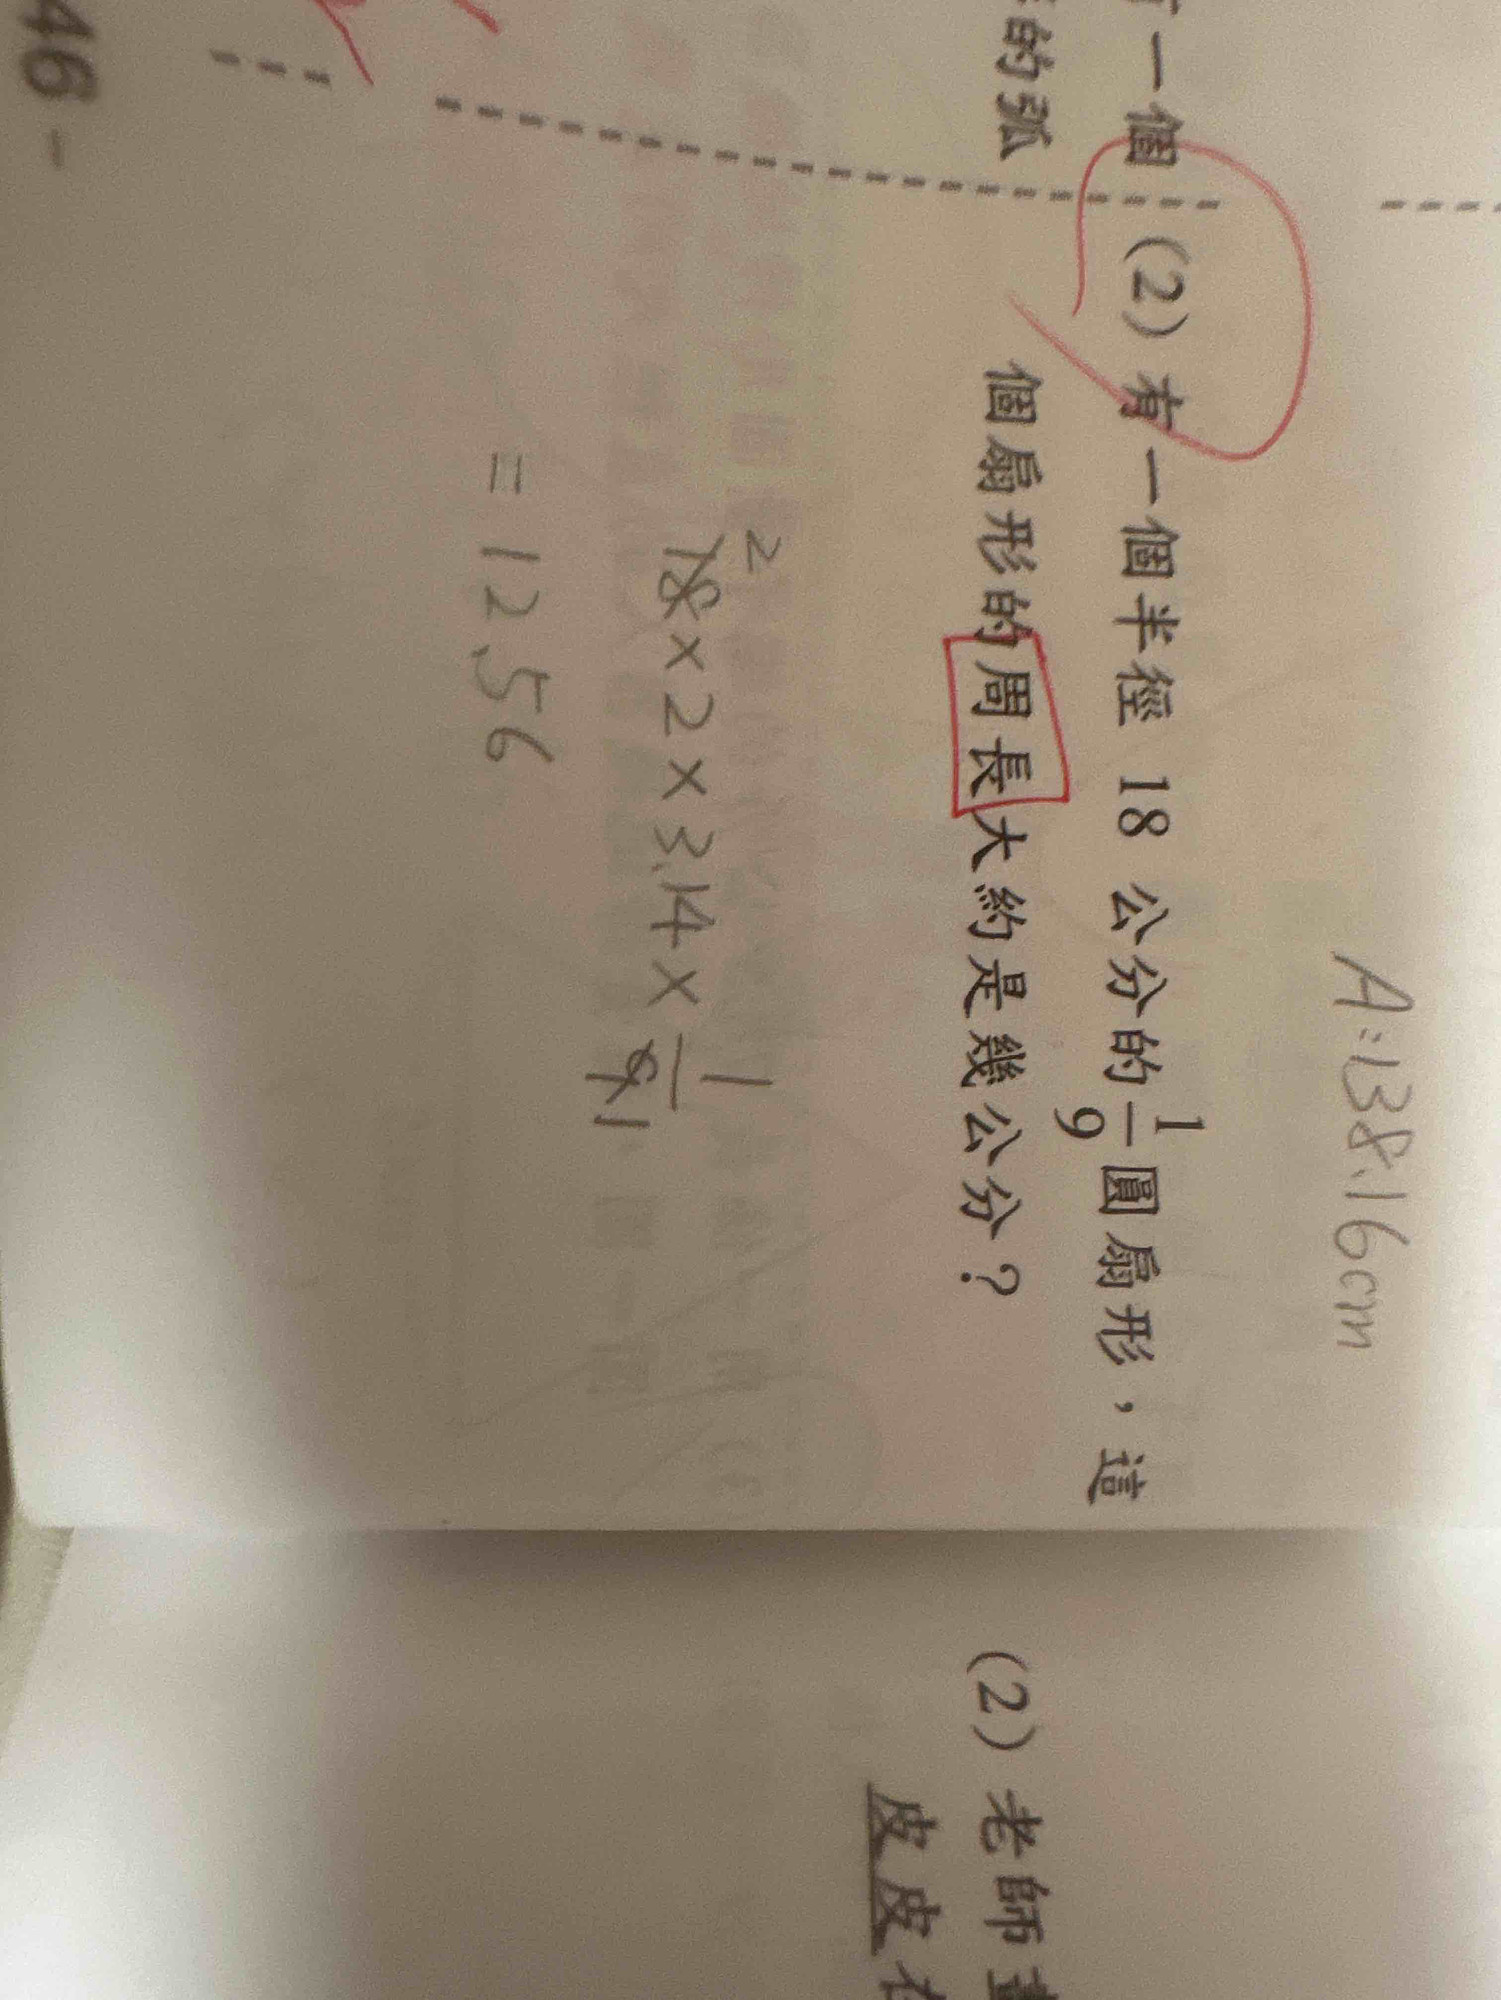 A:138.16cm
一個
的弧
(2)有一個半徑 18 公分的 1/9 圓扇形，這
個扇形的周長大約是幾公分？
2
18×2×3.14×1/9 1
=12.56
46 -
(2)老師
皮皮在